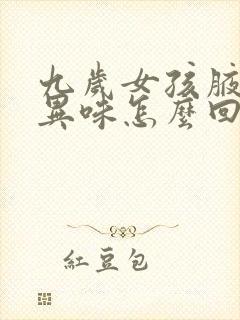 九歲女孩腋
異味怎麼回
紅豆包